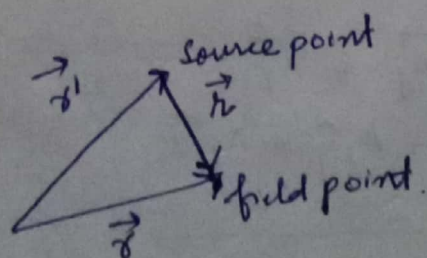 source point
r⃗'
r⃗
field point.
r⃗